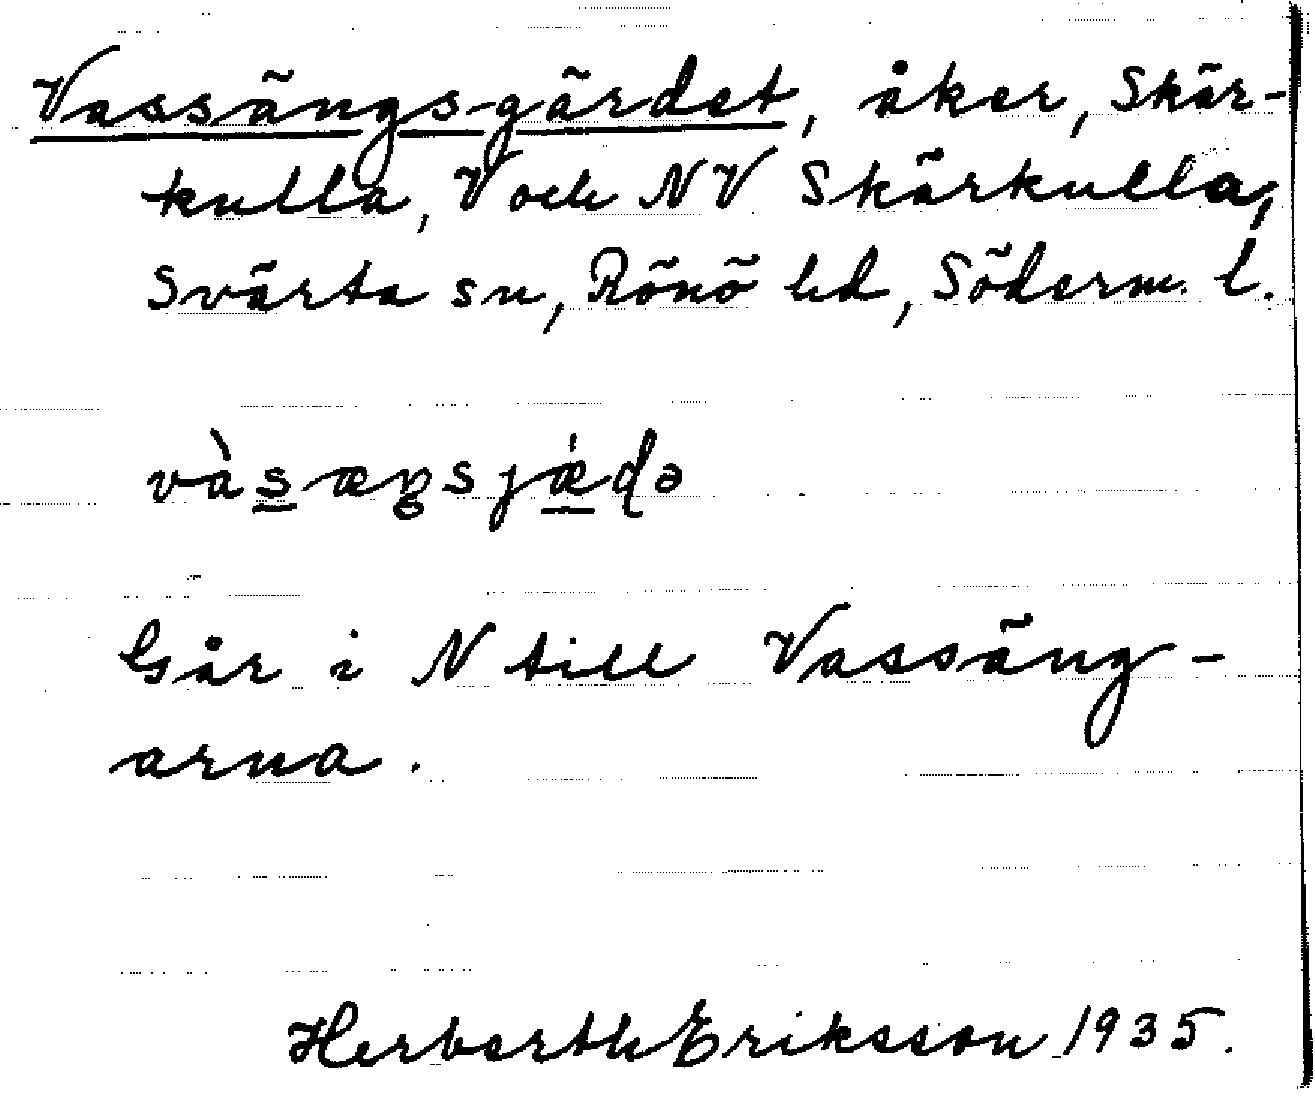 Vassängsgärdet, åker, Skär-
kulla, V och NV Skärkulla,
Svärta sn, Rönö hd, Söderm. l.
vàsæŋsjǽdə
Går i N till Vassäng-
arna.
Herberth Eriksson 1935.